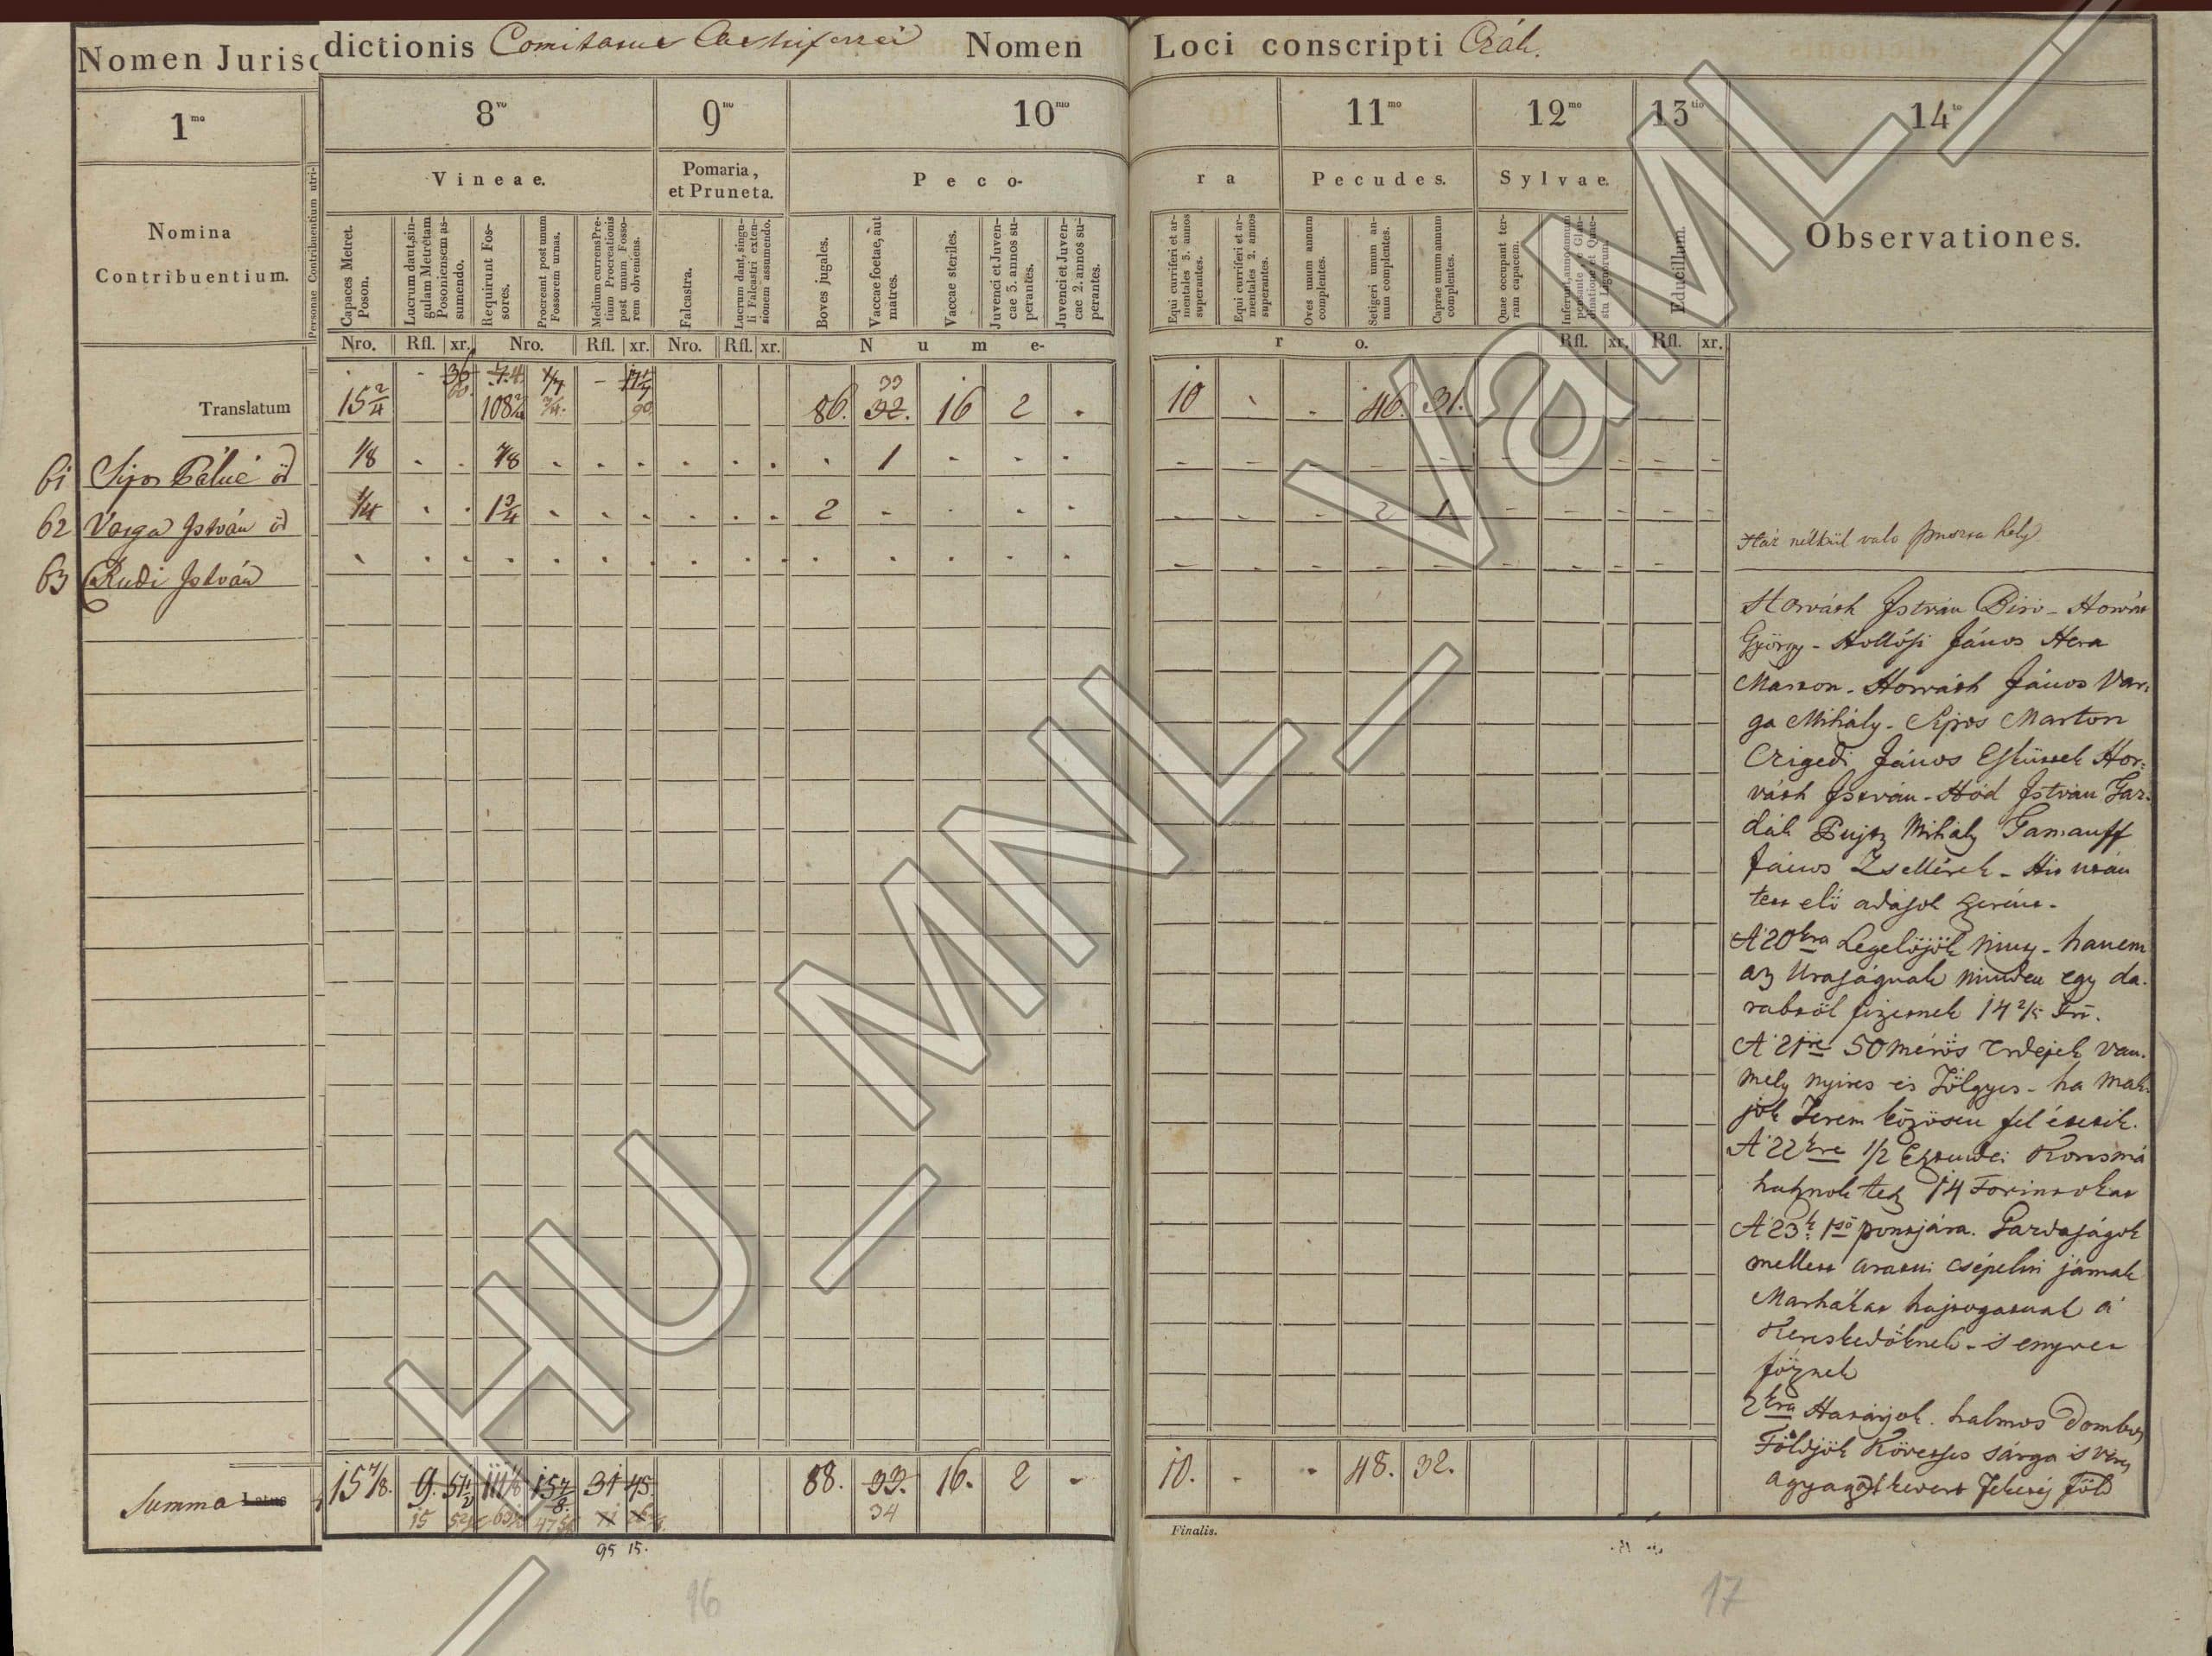 Nomen Jurisdictionis Comitatus Castriferrei Nomen Loci conscripti Czák.
1mo 8vo 9no 10mo 11mo 12mo 13tio 14to
Nomina Contribuentium.
Personae Contribuentium utri-
Vineae.
Pomaria, et Pruneta.
Peco-
ra
Pecudes.
Sylvae.
Educillum.
Observationes.
Capaces Metret. Poson.
Lucrum daut, singulam Metretam Posoniensem assumendo.
Requirunt Fossores.
Procreant post unum Fossorem urnas.
Medium currens Pretium Procreationis post unum Fossorem obveniens.
Falcastra.
Lucrum dant, singuli Falcastri extensionem assumendo.
Boves jugales.
Vaccae foetae, aut matres.
Vaccae steriles.
Juvenci et Juvencae 3. annos superantes.
Juvenci et Juvencae 2. annos superantes.
Equi curriferi et armentales 3. annos superantes.
Equi curriferi et armentales 2. annos superantes.
Oves unum annum complentes.
Setigeri unum annum complentes.
Caprae unum annum complentes.
Quae occupant terram capacem.
Nro. Rfl. xr. Nro. Rfl. xr. Nro. Rfl. xr. Nume-
ro. Rfl. xr. Rfl. xr.
Translatum 15 2/4 - 36 60. 108 2/4 3/4. - 90 86. 33 32. 16 2 . 10 - . 46. 31.
61 Sipos Pálné öz 1/8 . . 7/8 . . . . . . . 1 - - -
62 Varga István öz 1/4 . . 1 3/4 . . . . . . 2 - . . - - - - 2 1
63 Rudi István
Ház nélkül való puszta hely
Horváth István Biró - Horváth
György - Hollósi János Hera
Marton - Horváth János Var-
ga Mihály - Sipos Marton
Czigedi János Esküttek Hor-
váth István - Hód István Gaz-
dák Pujtz Mihály Gamauff
János Zsellérek - Hit után
tett elö adások szerint -
A 20kra Legelöjök nints - hanem
az Uraságnak minden egy da-
rabtöl fizetnek 14 2/5 xri.
A 21re 50 mérös Erdejek van.
mely nyires és Tölgyes - ha mak-
jok Terem közösen fel étetik.
A 22kre 1/2 Esztendei Korcsmá
hasznok tesz 14 Forintokat
A 23k 1sö pontjára. Gazdaságok
mellett aratni csépelni járnak
Marhákat hajtogatnak a'
Kereskedöknek - s enyvet
föznek
2kra Határjok. halmos dombos
Földjök Követses sárga is veres
agyagal kevert fekete Föld
Summa Latus 15 7/8. 9. 51 1/2 111 1/8 15 7/8. 31 45. 88. 33. 16. 2 - 10. . . 48. 32.
34
95 15.
Finalis.
16
17
HU_MNL_VaML_